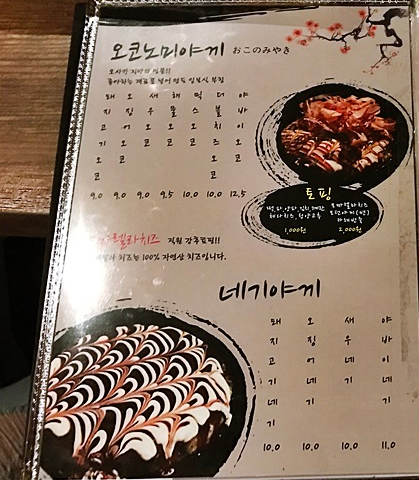 오코노미야끼 おこのみやき
오사카 지방의 명물!!
좋아하는 재료를 넣어 만든 일본식 부침
돼지고기오코 9.0
오징어오코 9.0
새우오코 9.0
해물오코 9.5
믹스오코 10.0
더블치즈오코 10.0
야바이오코 12.5
토핑
김치, 계란
청양고추
1,000원
모짜렐라치즈
2,000원
렐라치즈 직원 강추토핑!!
치즈는 100% 자연산 치즈입니다.
네기야끼
돼지고기네기 10.0
오징어네기 10.0
새우네기 10.0
야바이네기 11.0